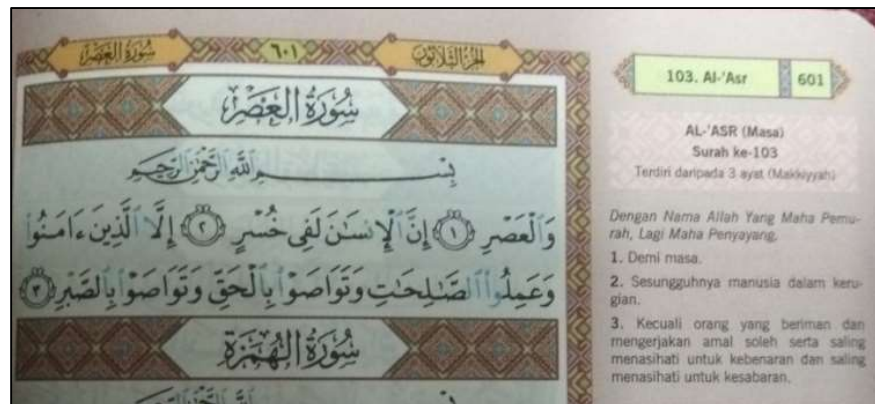 سُورَةُ العَصْرِ
٦٠١
الجُزْءُ الثَّلَاثُونَ
سُورَةُ العَصْرِ
بِسْمِ اللَّهِ الرَّحْمَٰنِ الرَّحِيمِ
وَالْعَصْرِ ١ إِنَّ الْإِنسَٰنَ لَفِى خُسْرٍ ٢ إِلَّا الَّذِينَ ءَامَنُوا
وَعَمِلُوا الصَّٰلِحَٰتِ وَتَوَاصَوْا بِالْحَقِّ وَتَوَاصَوْا بِالصَّبْرِ ٣
سُورَةُ الهُمَزَةِ
103. Al-'Asr
601
AL-'ASR (Masa)
Surah ke-103
Terdiri daripada 3 ayat (Makkiyyah)
Dengan Nama Allah Yang Maha Pemu-
rah, Lagi Maha Penyayang.
1. Demi masa.
2. Sesungguhnya manusia dalam keru-
gian.
3. Kecuali orang yang beriman dan
mengerjakan amal soleh serta saling
menasihati untuk kebenaran dan saling
menasihati untuk kesabaran.